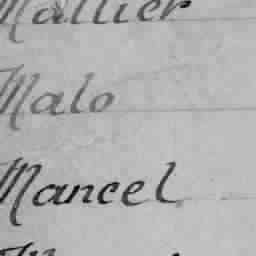 Mallier
Malo
Mancel